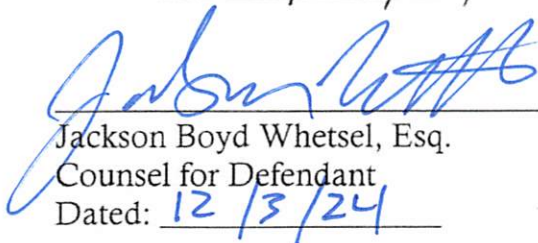 Jackson Boyd Whetsel, Esq.
Counsel for Defendant
Dated: 12/3/24